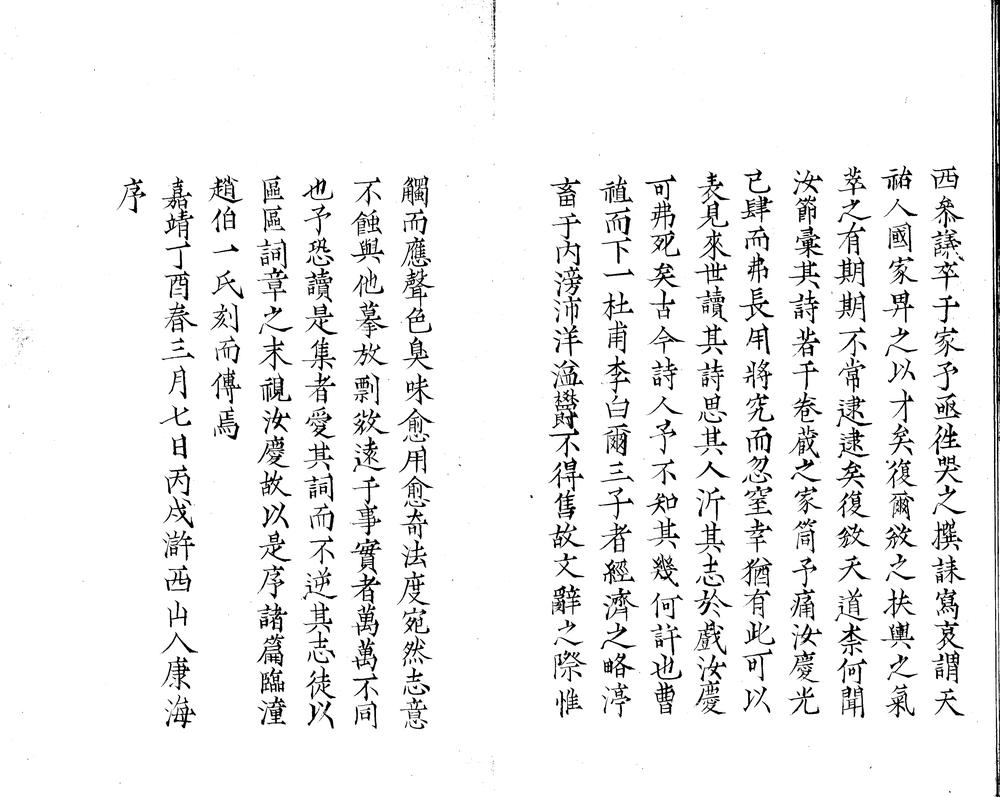 西叅議卒于家予亟徃哭之撰誄寫哀謂天
祐人國家畀之以才矣復爾欻之扶輿之氣
萃之有期期不常逮逮矣復欻天道柰何聞
汝節彙其詩若干卷蔵之家笥予痛汝慶光
已肆而弗長用將究而忽窒幸猶有此可以
表見來世讀其詩思其人沂其志於戲汝慶
可弗死矣古今詩人予不知其幾何許也曹
植而下一杜甫李白爾三子者經濟之略渟
畜于内滂沛洋溢欝不得售故文辭之際惟
觸而應聲色臭味愈用愈奇法度宛然志意
不蝕與他摹放剽敚遠于事實者萬萬不同
也予恐讀是集者愛其詞而不逆其志徒以
區區詞章之末視汝慶故以是序諸篇臨潼
趙伯一氏刻而傳焉
嘉靖丁酉春三月七日丙戌滸西山人康海
序